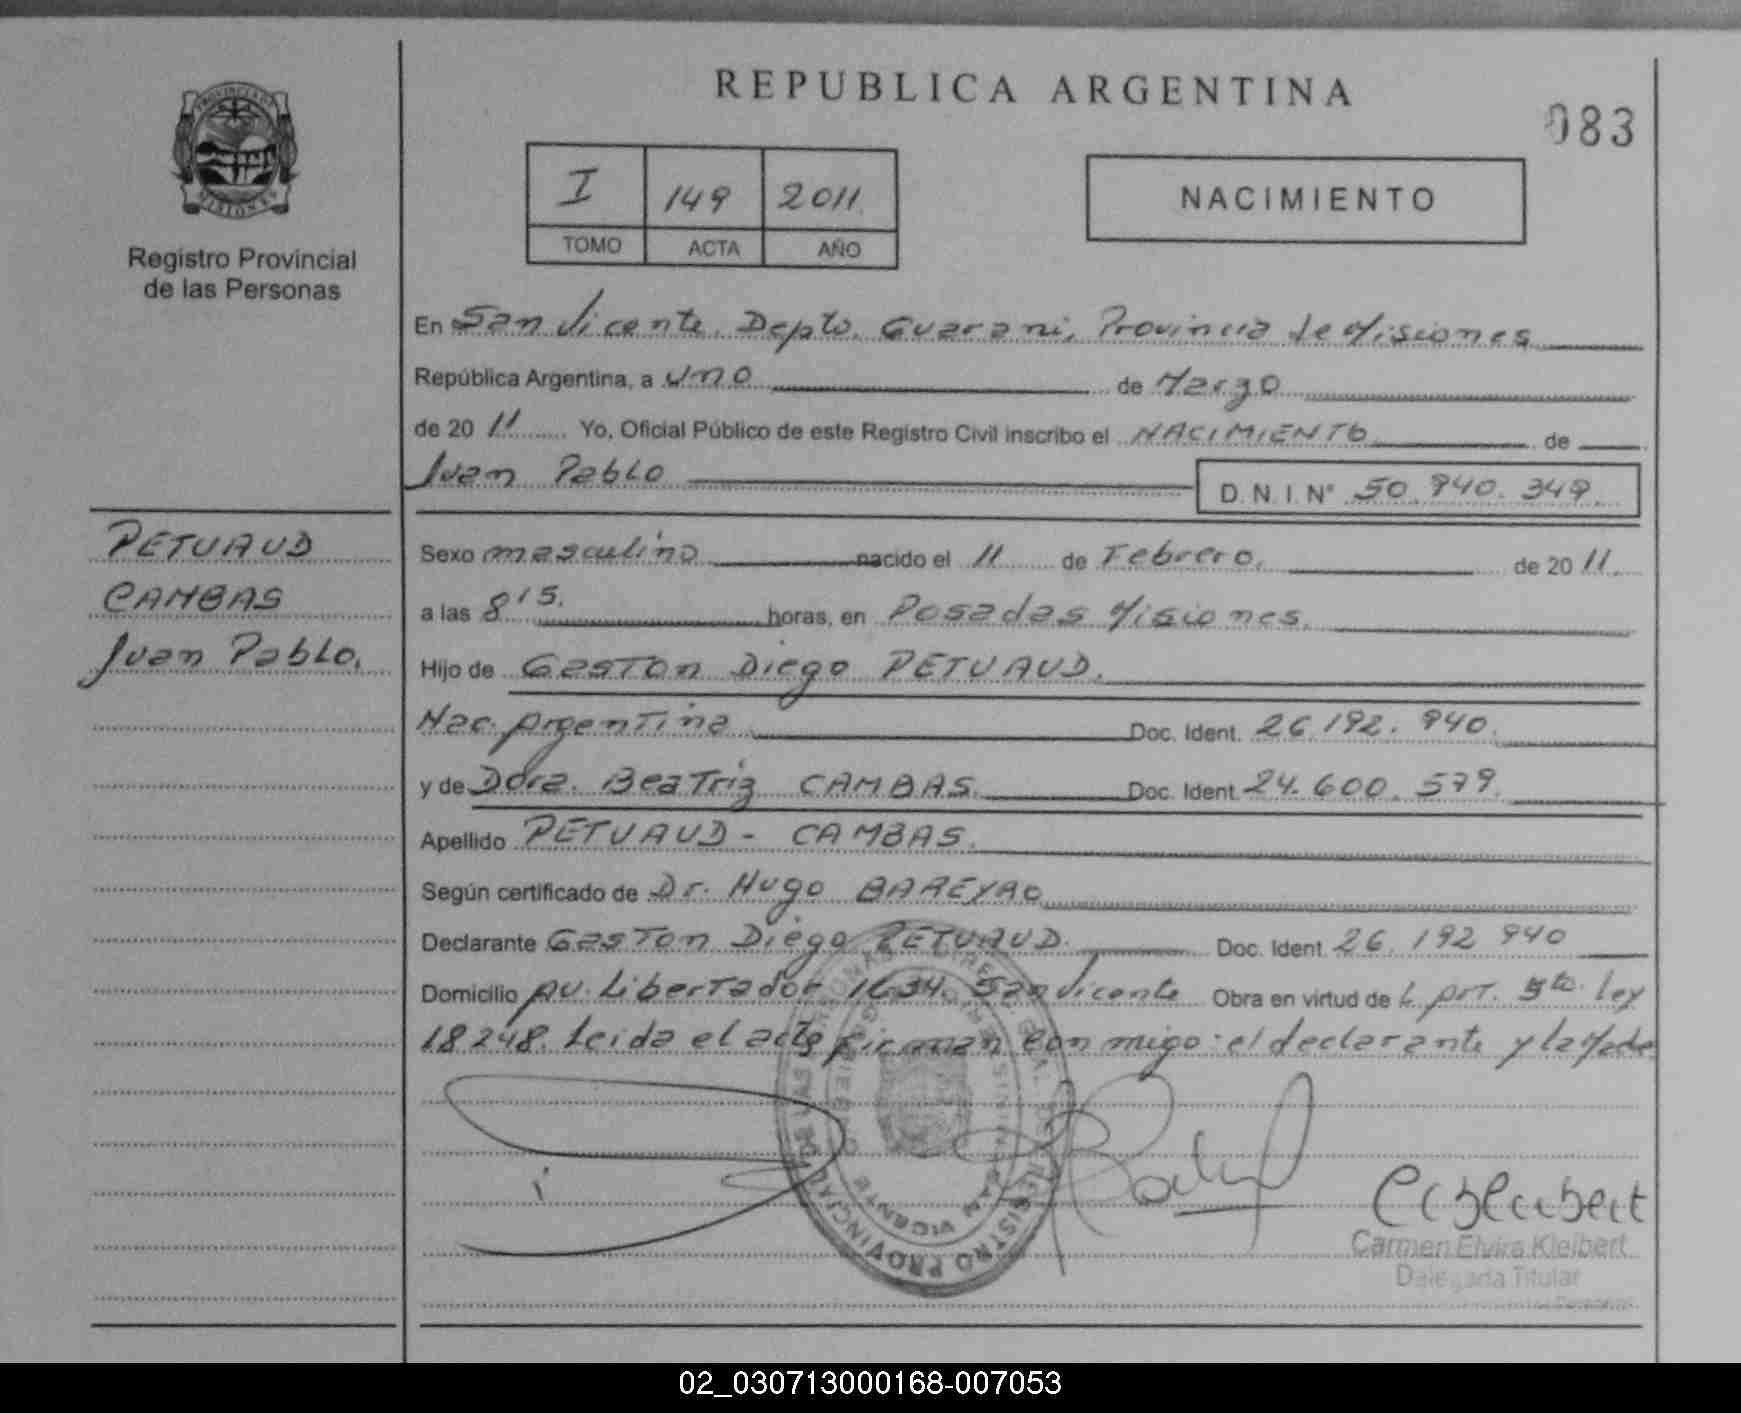 REPUBLICA ARGENTINA
083
PROVINCIA DE
MISIONES
Registro Provincial
de las Personas
I 149 2011
TOMO ACTA AÑO
NACIMIENTO
En San Vicente, Depto. Guarani, Provincia de Misiones
República Argentina, a uno de Marzo
de 20 11 Yo, Oficial Público de este Registro Civil inscribo el NACIMIENTO de
Juan Pablo D.N.I. N° 50.940.349.
PETUAUD
CAMBAS
Juan Pablo.
Sexo masculino nacido el 11 de Febrero. de 20 11.
a las 8 15. horas, en Posadas Misiones.
Hijo de Gaston Diego PETUAUD.
Nac. Argentina Doc. Ident. 26.192.940.
y de Dora Beatriz CAMBAS. Doc. Ident. 24.600.579.
Apellido PETUAUD - CAMBAS.
Según certificado de Dr. Hugo BAREYRO
Declarante Gaston Diego PETUAUD. Doc. Ident. 26.192 940
Domicilio Av. Libertador 1634. San Vicente Obra en virtud de L. Art. 5to. ley
18248. Leida el acta firman con migo: el declarante y la Madre
REGISTRO PROVINCIAL DE LAS PERSONAS
SAN VICENTE
Carmen Elvira Kleibert
Delegada Titular
02_030713000168-007053